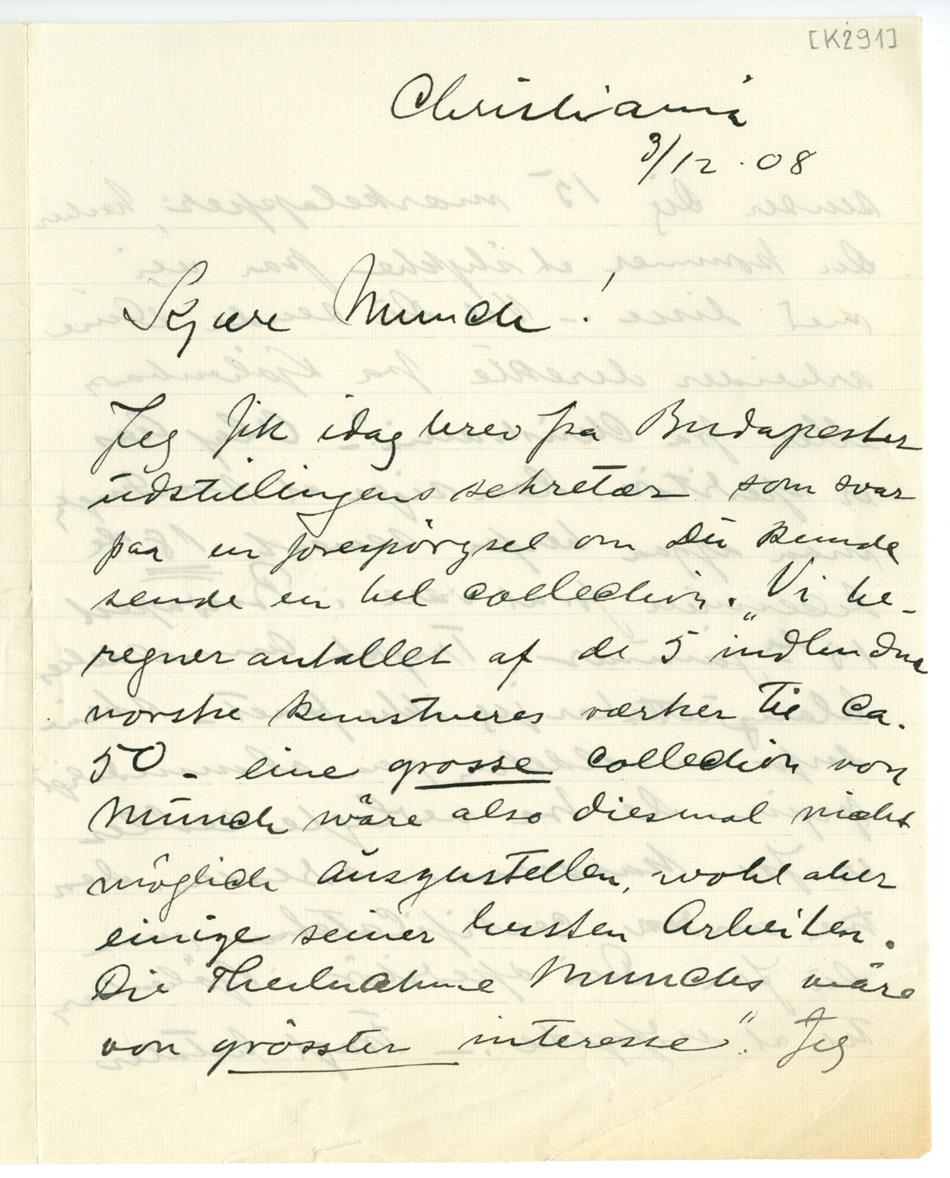 [K291]
Christiania
3/12.08
Kjære Munch!
Jeg fik idag brev fra Budapester
udstillingens sekretær som svar
paa en forespörgsel om Du kunde
sende en hel collection. „Vi be-
regner antallet af de 5 indbudne
norske kunstneres værker til ca.
50 – eine grosse collection von
Munch wäre also diesmal nicht
möglich auszustellen, wohl aber
einige seiner besten Arbeiten.
Die Theilnahme Munchs wäre
von grösster interesse". Jeg